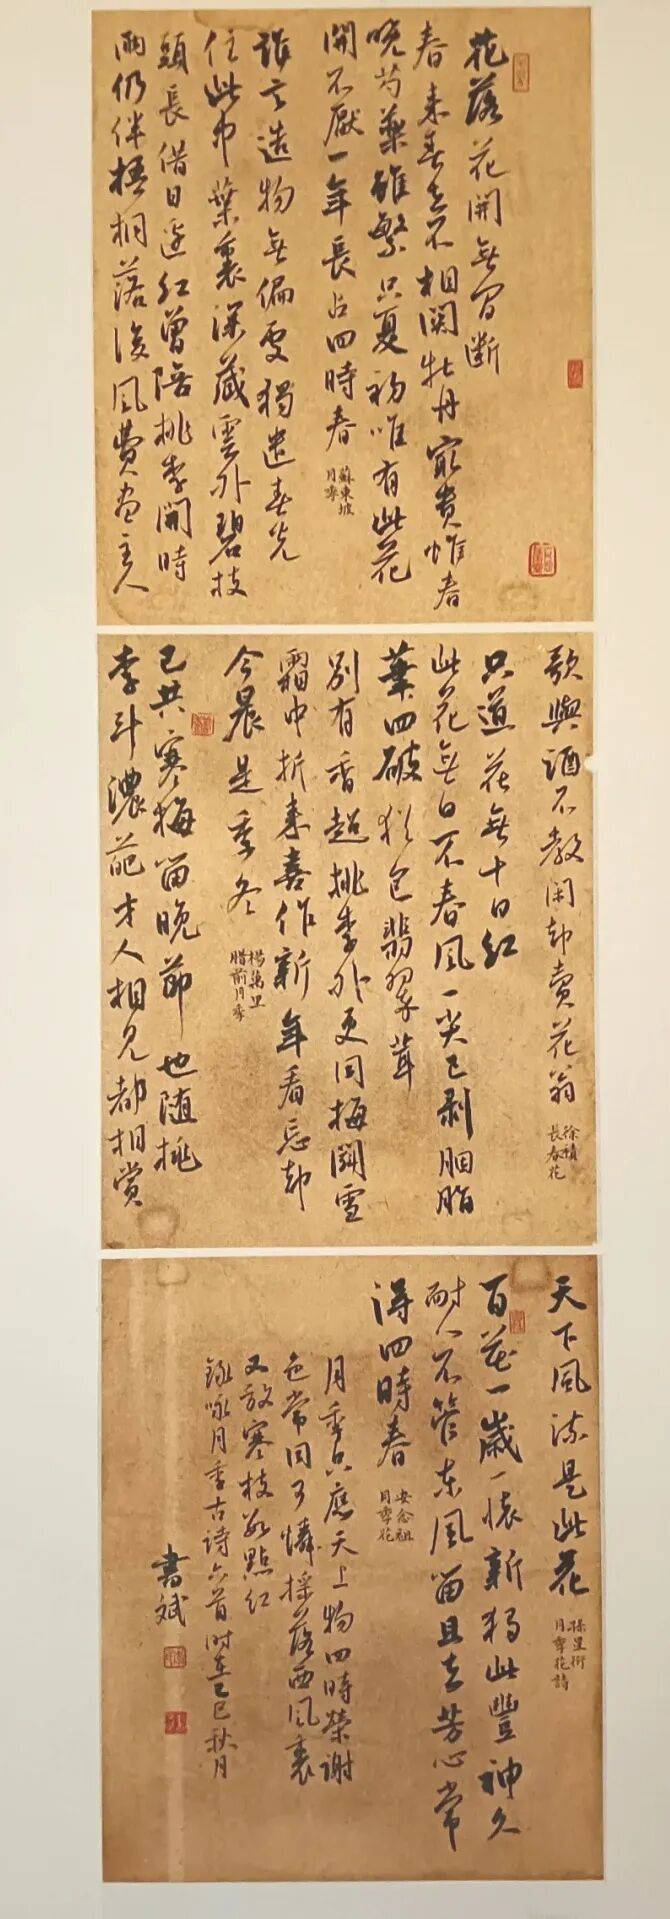 花落花開無間斷
春來春去不相關牡丹最貴惟春
晚芍藥雖繁只夏初唯有此花
開不厭一年長占四時春
蘇東坡
月季
誰言造物無偏處獨遣春光
住此中葉裏深藏雲外碧枝
頭長借日邊紅曾陪桃李開時
雨仍伴梧桐落後風費盡主人
歌與酒不教閑却賣花翁
徐積
長春花
只道花無十日紅
此花無日不春風一尖已剥胭脂
葉四破猶包翡翠茸
別有香超桃李外更同梅鬪雪
霜中折來喜作新年看忘却
今晨是季冬
楊萬里
腊前月季
已共寒梅留晚節也随桃
李斗濃葩才人相見都相賞
天下風流是此花
孫星衍
月季花詩
百花一歲一懷新獨此豐神久
耐人不管東風留且去芳心常
得四時春
安念祖
月季花
月季只應天上物四時榮謝
色常同可憐摇落西風裏
又放寒枝數點紅
錄咏月季古詩六首時在乙巳秋月
書斌